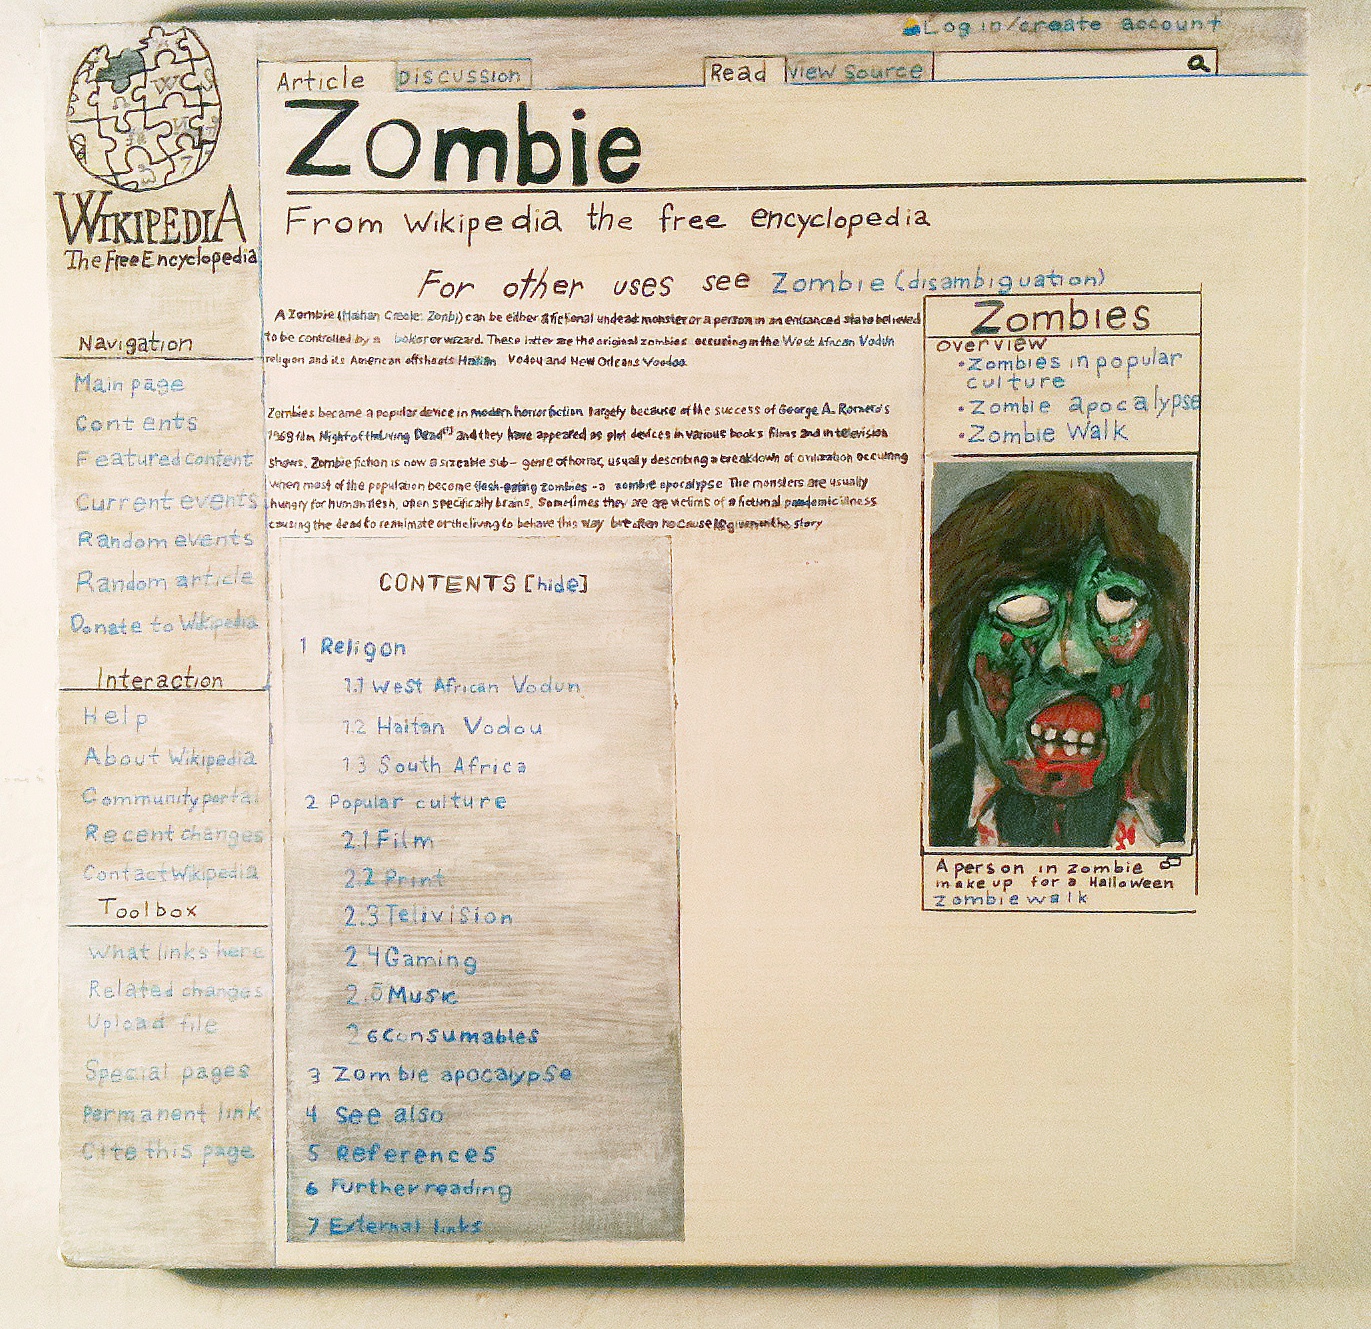 Log in/create account
Article Discussion Read View source
Zombie
WIKIPEDIA
The Free Encyclopedia
From Wikipedia the free encyclopedia
For other uses see Zombie (disambiguation)
A Zombie (Haitian Creole: Zonbi) can be either a fictional undead monster or a person in an entranced state believed
to be controlled by a bokor or wizard. These latter are the original zombies occuring in the West African Vodun
religion and its American offshoots Haitian Vodou and New Orleans Voodoo
Zombies became a popular device in modern horror fiction largely because of the success of George A. Romero's
1968 film Night of the Living Dead and they have appeared as plot devices in various books films and in television
shows. Zombie fiction is now a sizeable sub-genre of horror, usually describing a breakdown of civilization occuring
when most of the population become flesh-eating zombies - a zombie apocalypse The monsters are usually
hungry for human flesh, often specifically brains. Sometimes they are are victims of a fictional pandemic illness
causing the dead to reanimate or the living to behave this way but often no cause is given in the story
Zombies
Overview
•Zombies in popular
culture
•Zombie apocalypse
•Zombie Walk
A person in zombie
make up for a Halloween
Zombie walk
Navigation
Main page
Contents
Featured content
Current events
Random events
Random article
Donate to Wikipedia
Interaction
Help
About Wikipedia
Community portal
Recent changes
Contact Wikipedia
Toolbox
What links here
Related changes
Upload file
Special pages
Permanent link
Cite this page
CONTENTS [hide]
1 Religon
1.1 West African Vodun
1.2 Haitan Vodou
1.3 South Africa
2 Popular culture
2.1 Film
2.2 Print
2.3 Telivision
2.4 Gaming
2.5 Music
2.6 Consumables
3 Zombie apocalypse
4 See also
5 References
6 Further reading
7 External links